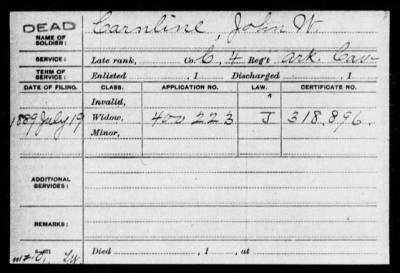 DEAD Carnline, John W.
NAME OF SOLDIER:
SERVICE: Late rank, Co. C, 4 Reg't Ark. Cav
TERM OF SERVICE: Enlisted , 1 Discharged , 1
DATE OF FILING. CLASS. APPLICATION NO. LAW. CERTIFICATE NO.
Invalid,
1889 July 19 Widow, 400 223 J 318,896.
Minor,
ADDITIONAL SERVICES:
REMARKS:
Died , 1 , at